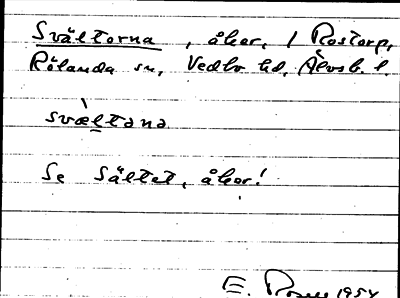 Svältorna, åker, / Rostorp,
Rölanda sn, Vedbo hd, Älvsb. l.
svæltana
Se Sältet, åker!
E. 1954